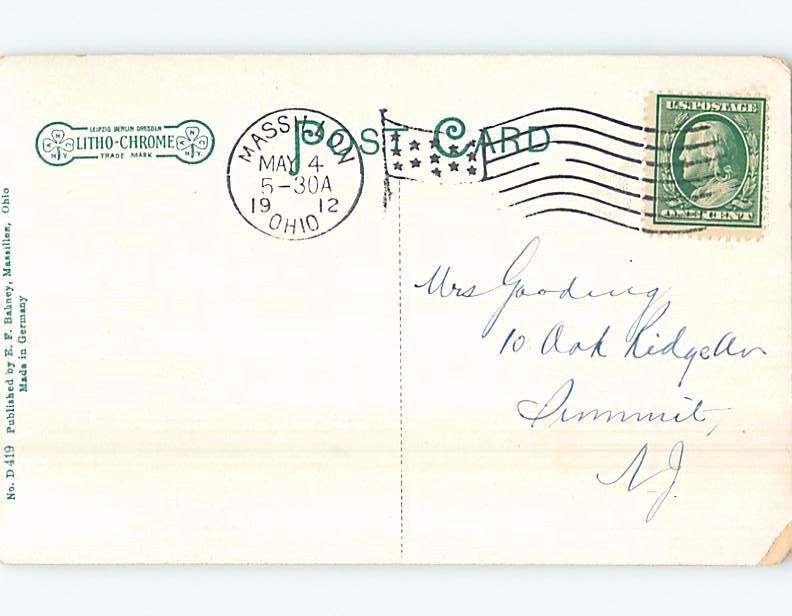 POST CARD
LEIPZIG BERLIN DRESDEN
LITHO-CHROME
TRADE MARK
N K N Y
N K N Y
MASSILLON
MAY 4
5-30A
1912
OHIO
U.S. POSTAGE
ONE CENT
Mrs Gooding
10 Oak Ridge Av
Summit,
N.J.
No. D 419 Published by E. F. Bahney, Massillon, Ohio
Made in Germany